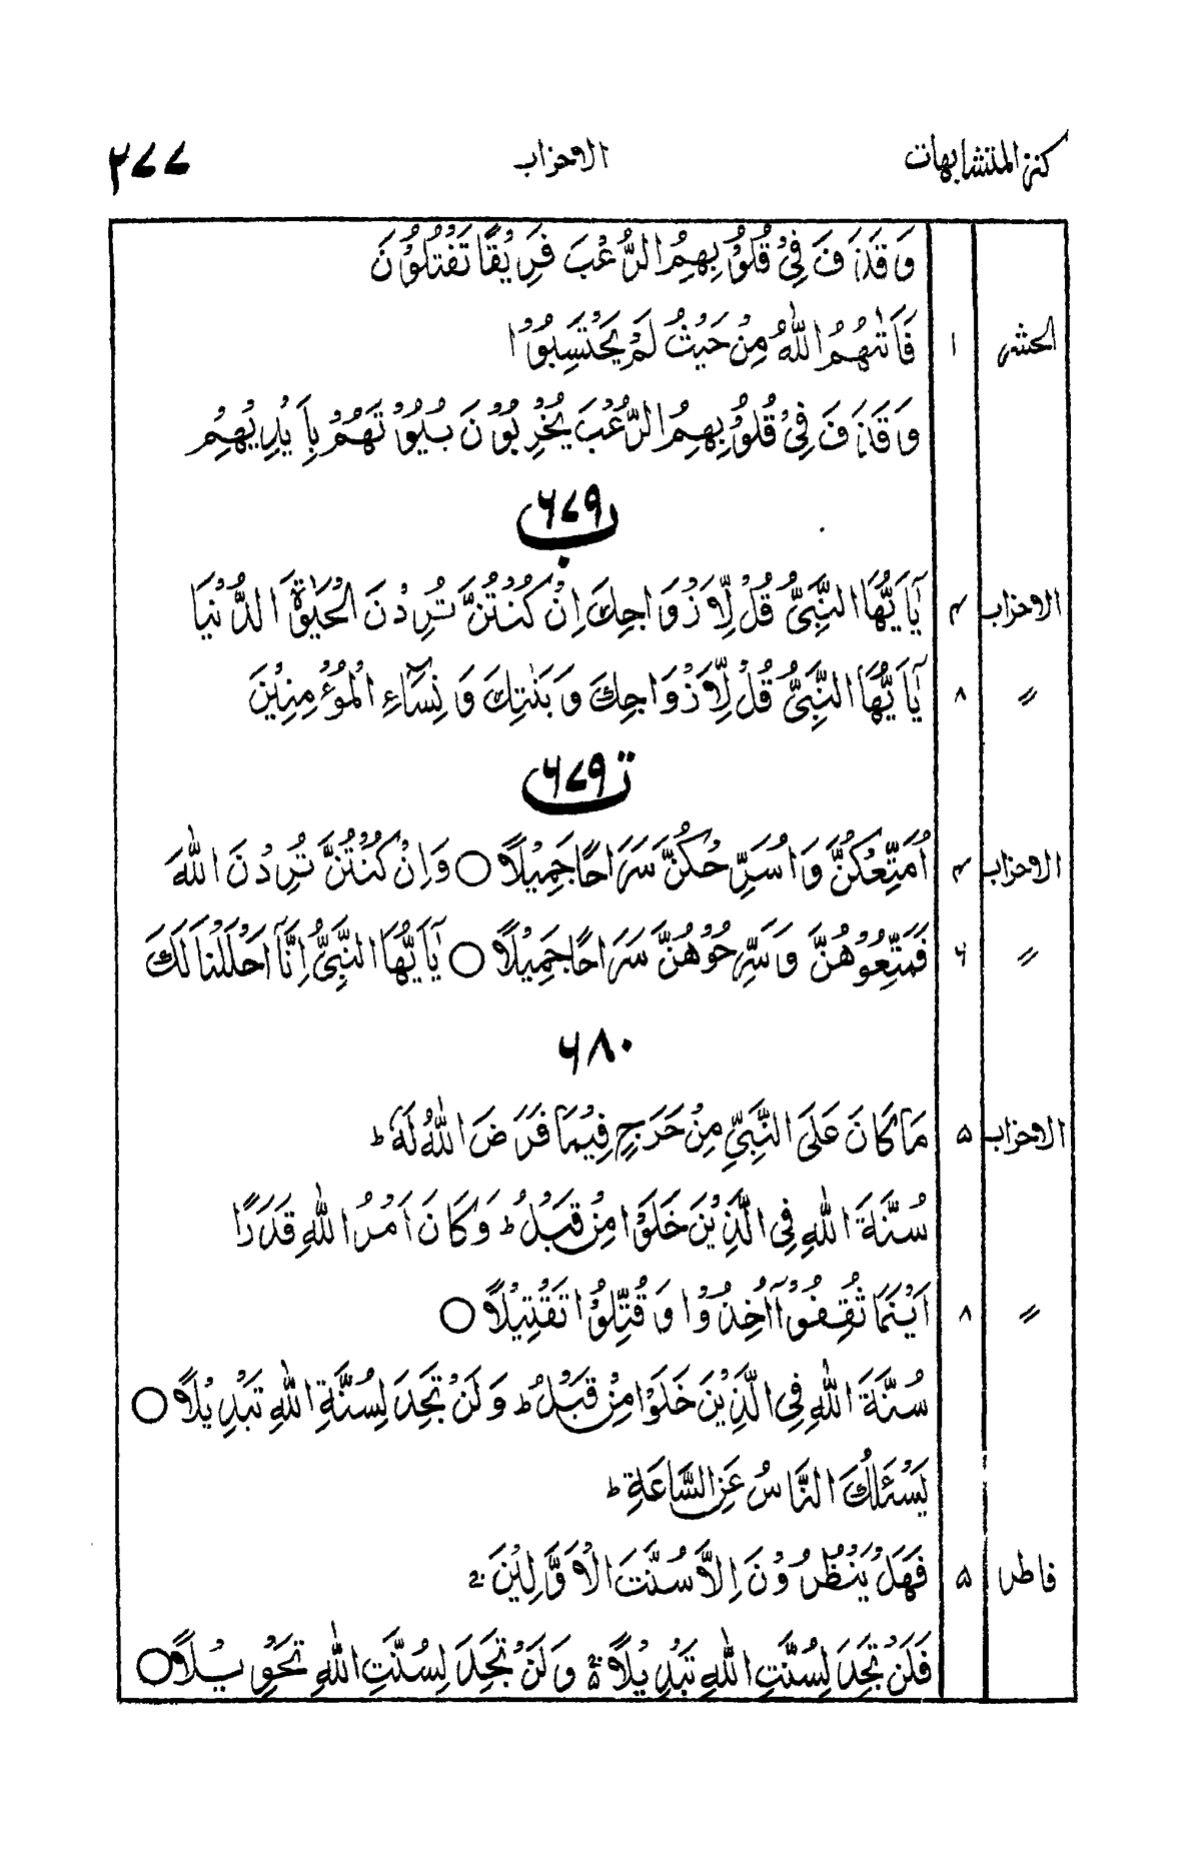 كنز المتشابهات الاحزاب ٢٧٧
وَقَذَفَ فِيْ قُلُوْبِهِمُ الرُّعْبَ فَرِيْقًا تَقْتُلُوْنَ
الحشر ١ فَاَتٰهُمُ اللّٰهُ مِنْ حَيْثُ لَمْ يَحْتَسِبُوْا
وَقَذَفَ فِيْ قُلُوْبِهِمُ الرُّعْبَ يُخْرِبُوْنَ بُيُوْتَهُمْ بِاَيْدِيْهِمْ
٦٧٩ ب
الاحزاب ۴ يٰٓاَيُّهَا النَّبِيُّ قُلْ لِّاَزْوَاجِكَ اِنْ كُنْتُنَّ تُرِدْنَ الْحَيٰوةَ الدُّنْيَا
〃 ٨ يٰٓاَيُّهَا النَّبِيُّ قُلْ لِّاَزْوَاجِكَ وَبَنٰتِكَ وَنِسَآءِ الْمُؤْمِنِيْنَ
٦٧٩ ت
الاحزاب ۴ اُمَتِّعْكُنَّ وَاُسَرِّحْكُنَّ سَرَاحًا جَمِيْلًا ○ وَاِنْ كُنْتُنَّ تُرِدْنَ اللّٰهَ
〃 ٦ فَمَتِّعُوْهُنَّ وَسَرِّحُوْهُنَّ سَرَاحًا جَمِيْلًا ○ يٰٓاَيُّهَا النَّبِيُّ اِنَّآ اَحْلَلْنَا لَكَ
٦٨٠
الاحزاب ۵ مَا كَانَ عَلَى النَّبِيِّ مِنْ حَرَجٍ فِيْمَا فَرَضَ اللّٰهُ لَهٗ ؕ
سُنَّةَ اللّٰهِ فِي الَّذِيْنَ خَلَوْا مِنْ قَبْلُ ؕ وَكَانَ اَمْرُ اللّٰهِ قَدَرًا
〃 ٨ اَيْنَمَا ثُقِفُوْٓا اُخِذُوْا وَقُتِّلُوْا تَقْتِيْلًا ○
سُنَّةَ اللّٰهِ فِي الَّذِيْنَ خَلَوْا مِنْ قَبْلُ ؕ وَلَنْ تَجِدَ لِسُنَّةِ اللّٰهِ تَبْدِيْلًا ○
يَسْـَٔلُكَ النَّاسُ عَنِ السَّاعَةِ ؕ
فاطر ۵ فَهَلْ يَنْظُرُوْنَ اِلَّا سُنَّتَ الْاَوَّلِيْنَ ۚ
فَلَنْ تَجِدَ لِسُنَّتِ اللّٰهِ تَبْدِيْلًا ۬ۚ وَلَنْ تَجِدَ لِسُنَّتِ اللّٰهِ تَحْوِيْلًا ○